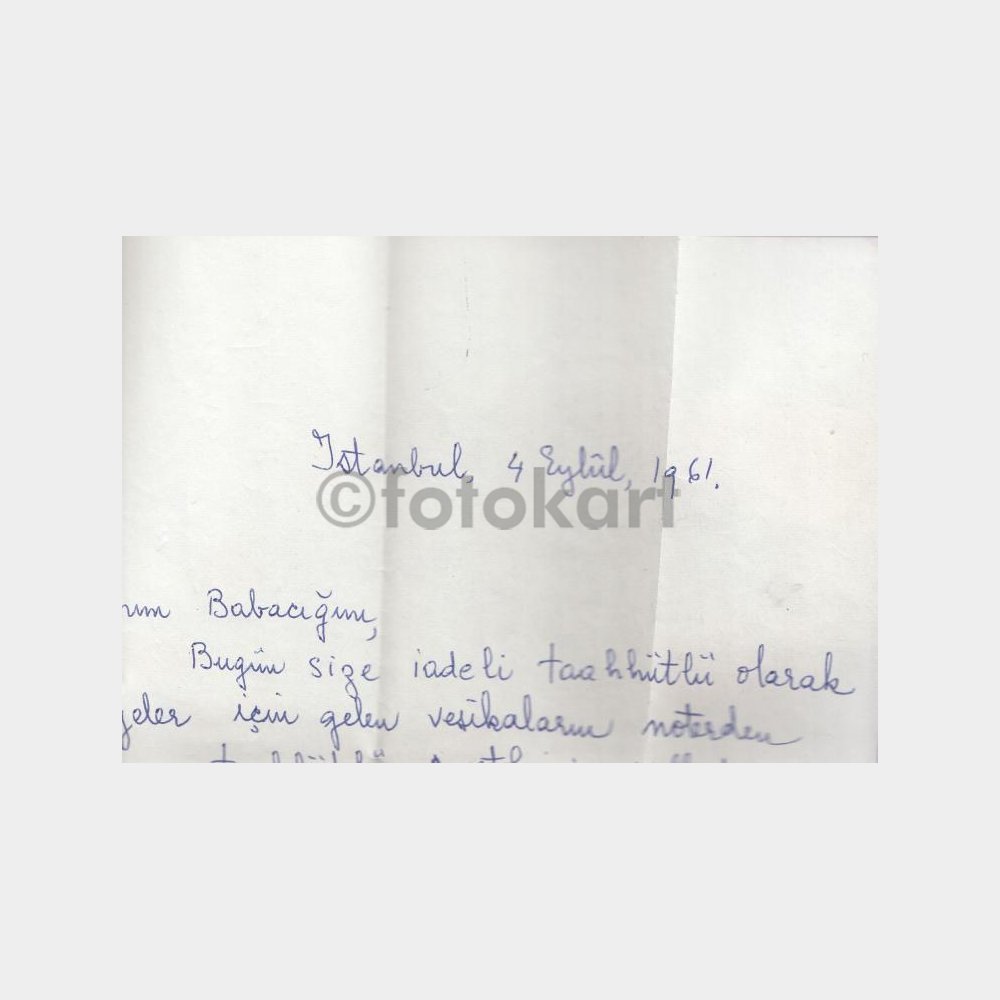 İstanbul, 4 Eylül, 1961.
©fotokart
Babacığım,
Bugün size iadeli taahhütlü olarak
için gelen vesikaların noterden